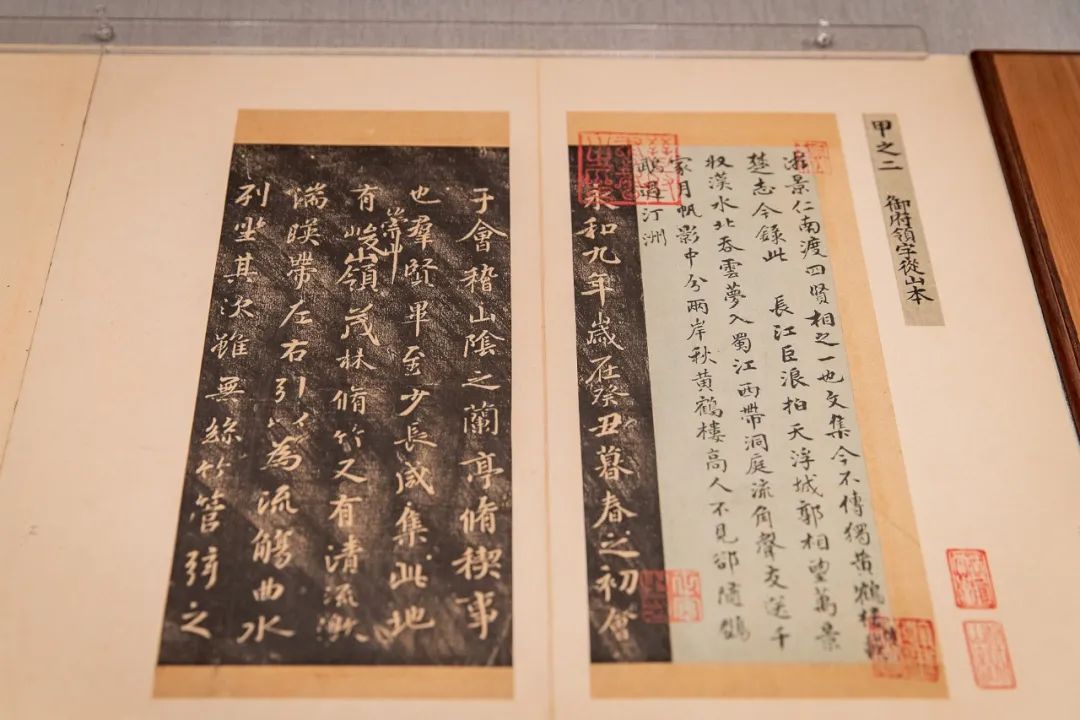 甲之二
御府領字從山本
游景仁南渡四賢相之一也文集今不傳獨黃鶴樓
楚志今錄此 長江巨浪拍天浮城郭相望萬景
收漢水北吞雲夢入蜀江西帶洞庭流角聲交送千
家月帆影中分兩岸秋黃鶴樓高人不見卻隨鸚
鵡過汀洲
永和九年歲在癸丑暮春之初會
于會稽山陰之蘭亭脩稧事
也羣賢畢至少長咸集此地
有崇山峻嶺茂林脩竹又有清流激
湍暎帶左右引以為流觴曲水
列坐其次雖無絲竹管弦之